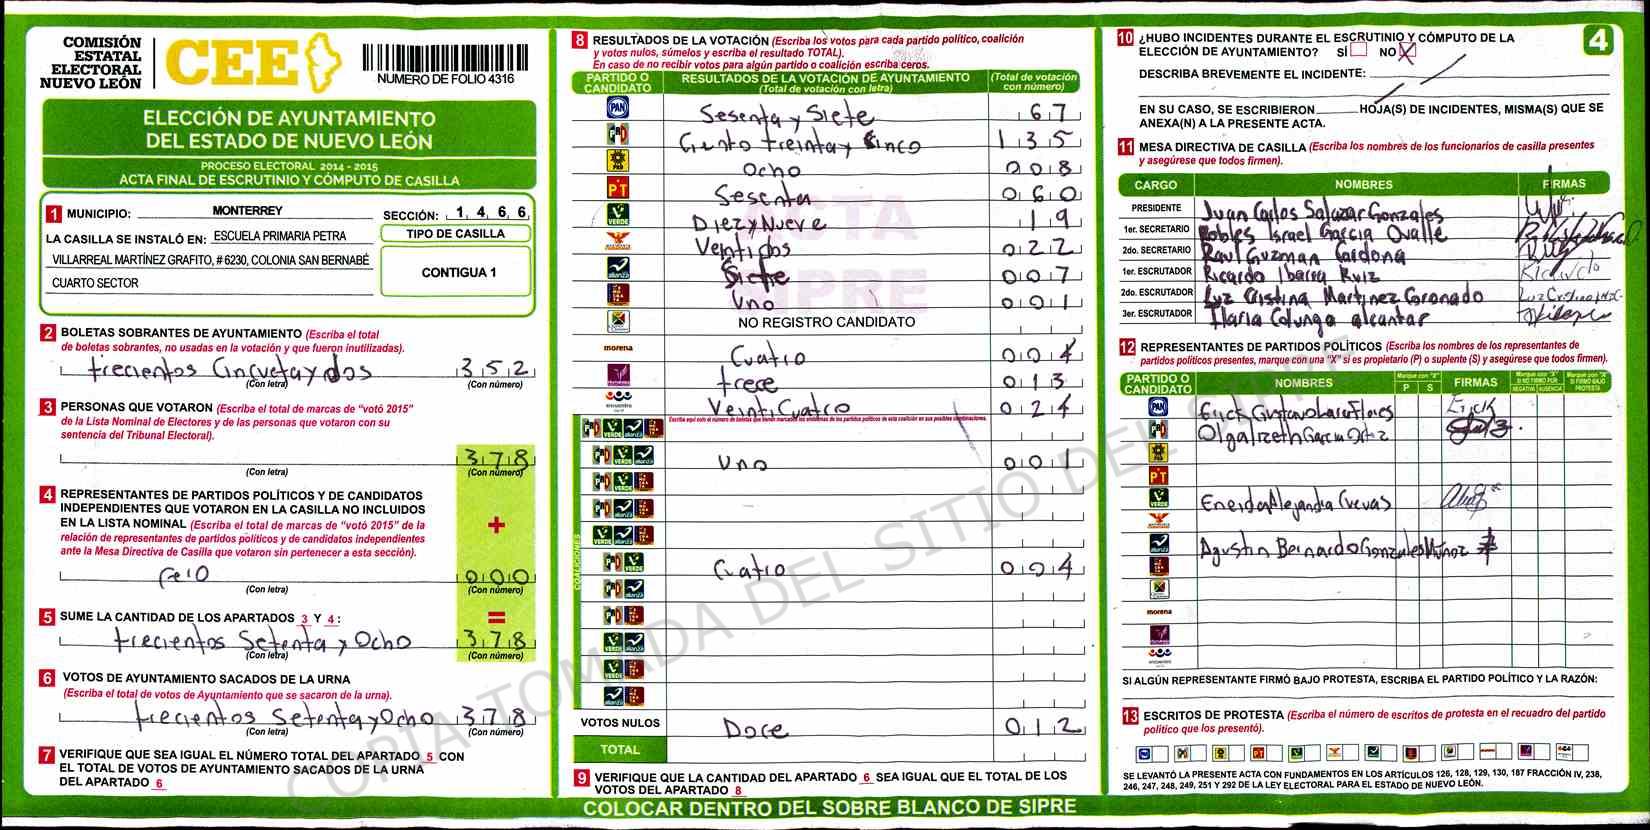 COMISIÓN
ESTATAL
ELECTORAL
NUEVO LEÓN
CEE
NUMERO DE FOLIO 4316
ELECCIÓN DE AYUNTAMIENTO
DEL ESTADO DE NUEVO LEÓN
PROCESO ELECTORAL 2014 - 2015
ACTA FINAL DE ESCRUTINIO Y CÓMPUTO DE CASILLA
1 MUNICIPIO: MONTERREY SECCIÓN: 1, 4, 6, 6,
LA CASILLA SE INSTALÓ EN: ESCUELA PRIMARIA PETRA
VILLARREAL MARTÍNEZ GRAFITO, # 6230, COLONIA SAN BERNABÉ
CUARTO SECTOR
TIPO DE CASILLA
CONTIGUA 1
2 BOLETAS SOBRANTES DE AYUNTAMIENTO (Escriba el total
de boletas sobrantes, no usadas en la votación y que fueron inutilizadas).
trecientos Cincuetaydos 352
(Con letra) (Con número)
3 PERSONAS QUE VOTARON (Escriba el total de marcas de “votó 2015”
de la Lista Nominal de Electores y de las personas que votaron con su
sentencia del Tribunal Electoral).
378
(Con letra) (Con número)
4 REPRESENTANTES DE PARTIDOS POLÍTICOS Y DE CANDIDATOS
INDEPENDIENTES QUE VOTARON EN LA CASILLA NO INCLUIDOS
EN LA LISTA NOMINAL (Escriba el total de marcas de “votó 2015” de la
relación de representantes de partidos políticos y de candidatos independientes
ante la Mesa Directiva de Casilla que votaron sin pertenecer a esta sección).
+
000
(Con letra) (Con número)
5 SUME LA CANTIDAD DE LOS APARTADOS 3 Y 4 : =
trecientos Setenta y Ocho 378
(Con letra) (Con número)
6 VOTOS DE AYUNTAMIENTO SACADOS DE LA URNA
(Escriba el total de votos de Ayuntamiento que se sacaron de la urna).
trecientos Setenta y Ocho 378
(Con letra) (Con número)
7 VERIFIQUE QUE SEA IGUAL EL NÚMERO TOTAL DEL APARTADO 5 CON
EL TOTAL DE VOTOS DE AYUNTAMIENTO SACADOS DE LA URNA
DEL APARTADO 6
8 RESULTADOS DE LA VOTACIÓN (Escriba los votos para cada partido político, coalición
y votos nulos, súmelos y escriba el resultado TOTAL).
En caso de no recibir votos para algún partido o coalición escriba ceros.
PARTIDO O CANDIDATO
RESULTADOS DE LA VOTACIÓN DE AYUNTAMIENTO
(Total de votación con letra)
(Total de votación con número)
PAN Sesenta y Siete 67
PRI Ciento treinta y Sinco 135
PRD Ocho 008
PT Sesenta 060
VERDE Diez y Nueve 19
Ventidos 022
alianza Siete 007
Uno 001
NO REGISTRO CANDIDATO
morena Cuatro 004
trece 013
encuentro Veinti Cuatro 024
Escriba aquí solo el número de boletas que tienen marcados los emblemas de los partidos políticos de esta coalición en sus posibles combinaciones.
COALICIONES
Uno 001
Cuatro 004
VOTOS NULOS Doce 012
TOTAL
9 VERIFIQUE QUE LA CANTIDAD DEL APARTADO 6 SEA IGUAL QUE EL TOTAL DE LOS
VOTOS DEL APARTADO 8
ACTA
SIPRE
COPIA TOMADA DEL SITIO DEL SIPRE
COLOCAR DENTRO DEL SOBRE BLANCO DE SIPRE
10 ¿HUBO INCIDENTES DURANTE EL ESCRUTINIO Y CÓMPUTO DE LA
ELECCIÓN DE AYUNTAMIENTO? SÍ NO X
4
DESCRIBA BREVEMENTE EL INCIDENTE:
EN SU CASO, SE ESCRIBIERON HOJA(S) DE INCIDENTES, MISMA(S) QUE SE
ANEXA(N) A LA PRESENTE ACTA.
11 MESA DIRECTIVA DE CASILLA (Escriba los nombres de los funcionarios de casilla presentes
y asegúrese que todos firmen).
CARGO NOMBRES FIRMAS
PRESIDENTE Juan Carlos Salazar Gonzales
1er. SECRETARIO Robles Israel Garcia Ovalle
2do. SECRETARIO Raul Guzman Cardona
1er. ESCRUTADOR Ricardo Ibarra Ruiz
2do. ESCRUTADOR Luz Cristina Martinez Coronado
3er. ESCRUTADOR Ilaria Colunga alcantar
12 REPRESENTANTES DE PARTIDOS POLÍTICOS (Escriba los nombres de los representantes de
partidos políticos presentes, marque con una “X” si es propietario (P) o suplente (S) y asegúrese que todos firmen).
PARTIDO O CANDIDATO NOMBRES Marque con “X” P S FIRMAS Marque con “X” SI NO FIRMÓ POR NEGATIVA AUSENCIA Marque con “X” SI FIRMÓ BAJO PROTESTA
PAN Erick Gustavo Lara Flores Erick
PRI Olga lizeth Garcia Ortiz
PRD
PT
VERDE Eneida Alejandra Cuevas
alianza Agustin Bernardo Gonzales Muñoz
morena
encuentro
SI ALGÚN REPRESENTANTE FIRMÓ BAJO PROTESTA, ESCRIBA EL PARTIDO POLÍTICO Y LA RAZÓN:
13 ESCRITOS DE PROTESTA (Escriba el número de escritos de protesta en el recuadro del partido
político que los presentó).
SE LEVANTÓ LA PRESENTE ACTA CON FUNDAMENTOS EN LOS ARTÍCULOS 126, 128, 129, 130, 187 FRACCIÓN IV, 238,
246, 247, 248, 249, 251 Y 292 DE LA LEY ELECTORAL PARA EL ESTADO DE NUEVO LEÓN.